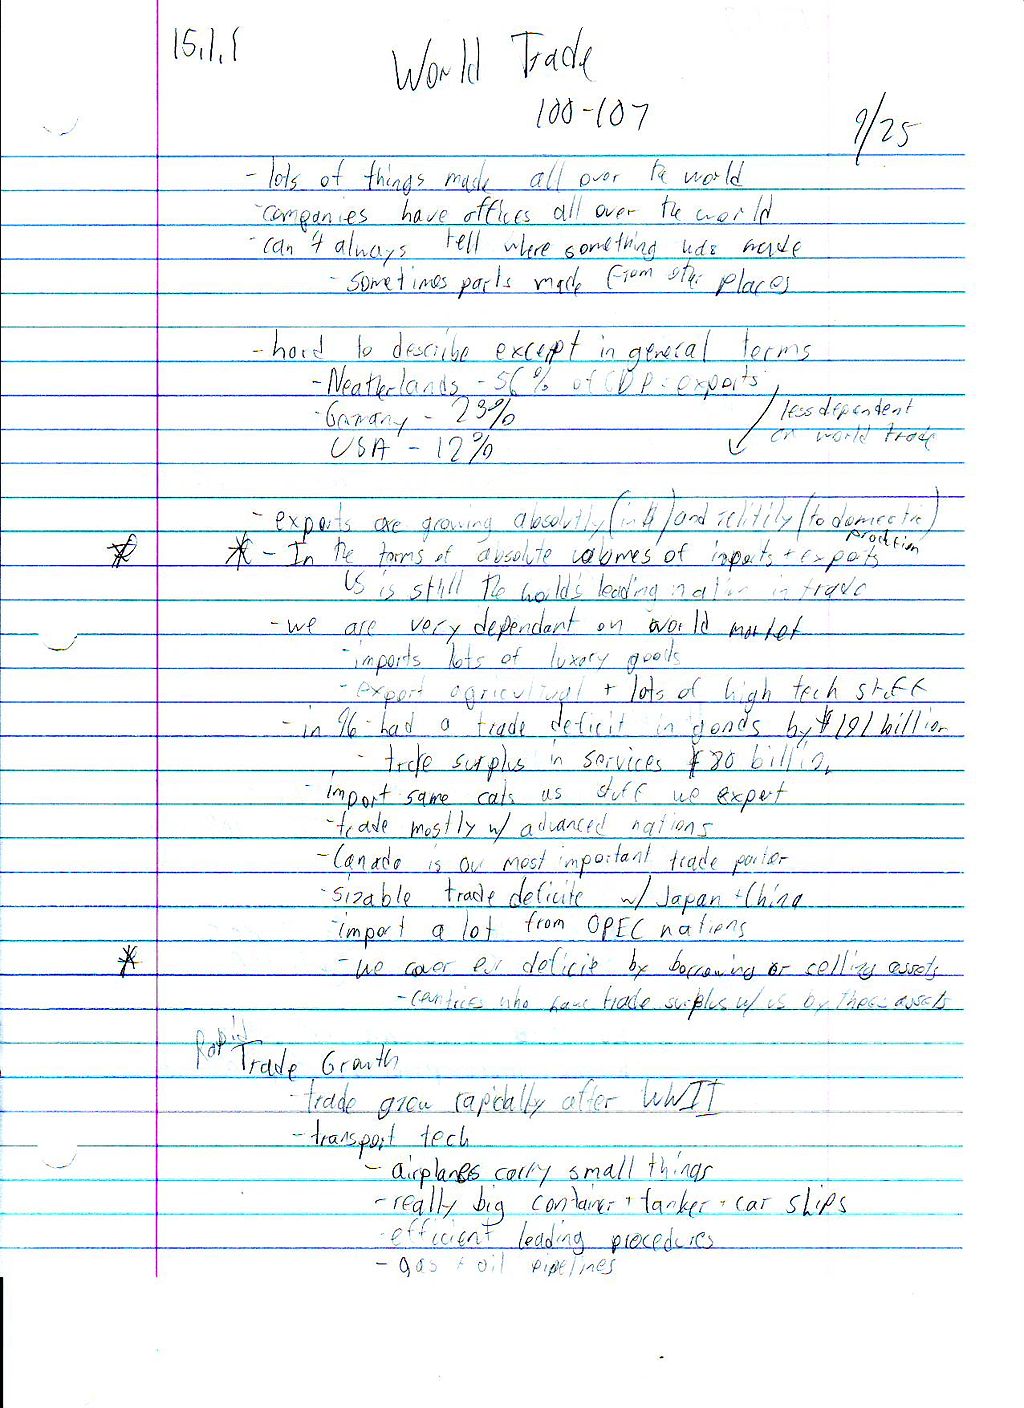 15.1.1
World Trade
100-107
9/25
- lots of things made all over the world
- companies have offices all over the world
- can't always tell where something was made
- sometimes parts made from other places
- hard to describe except in general terms
- Neatherlands - 56% of GDP = exports
- Germany - 23%
USA - 12%
less dependent
on world trade
- exports are growing absolutly (in $) and relitily (to domestic)
production
* * - In the terms of absolute volumes of imports + exports
US is still the world's leading nation in trade
- we are very dependant on world market
- imports lots of luxury goods
- export agricultural + lots of high tech stuff
- in 96 had a trade deficit in goods by $191 billion
- trade surplus in services $80 billion
- import same cats as stuff we export
- trade mostly w/ advanced nations
- Canada is our most important trade parter
- sizable trade deficite w/ Japan + China
- import a lot from OPEC nations
* - we cover our deficit by borrowing or selling assets
- contries who have trade surplus w/ us by these assets
Rapid
Trade Growth
- trade grew rapidally after WWII
- transport tech
- airplanes carry small things
- really big container + tanker + car ships
- efficient loading procedures
- gas + oil pipelines